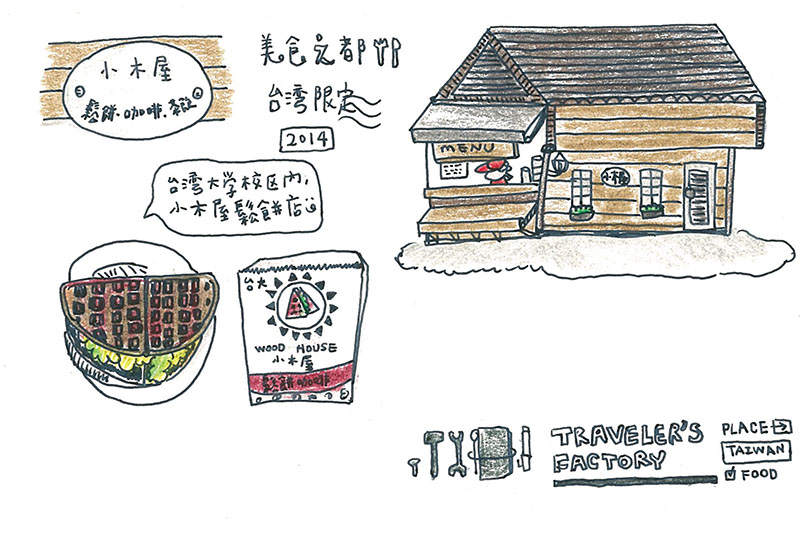 小木屋
鬆餅.咖啡.
美食之都
台湾限定
2014
台湾大学校区内,
小木屋鬆餅店
MENU
小木屋
台大
WOOD HOUSE
小木屋
鬆餅咖啡
TRAVELER'S
FACTORY
PLACE
TAIWAN
FOOD